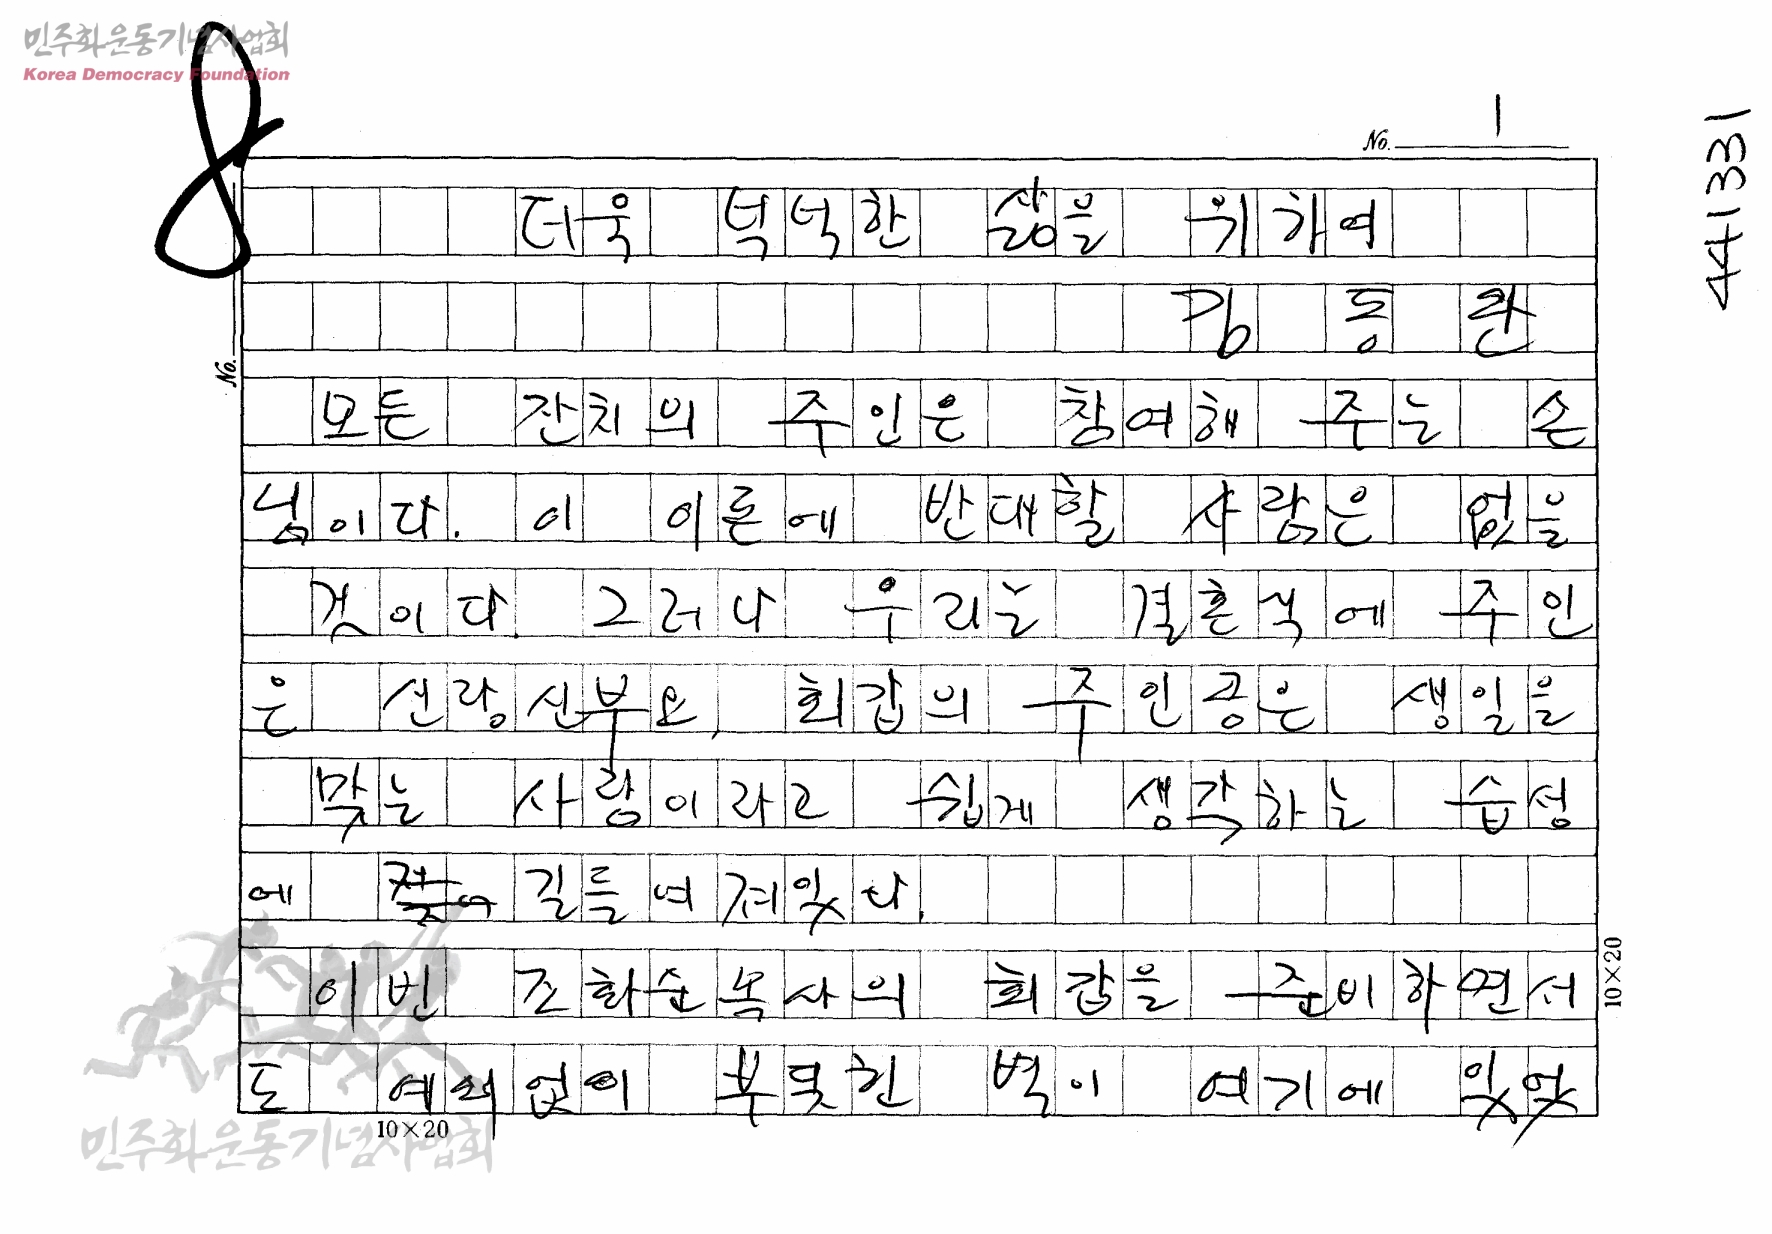 민주화운동기념사업회
Korea Democracy Foundation
8
No. 1
441331
더욱 넉넉한 삶을 위하여
No.
김 동 완
모든 잔치의 주인은 참여해 주는 손
님이다. 이 이론에 반대할 사람은 없을
것이다. 그러나 우리는 결혼식에 주인
은 신랑신부요, 회갑의 주인공은 생일을
맞는 사람이라고 쉽게 생각하는 습성
에 길들여져있다.
이번 조화순목사의 회갑을 준비하면서
도 예외없이 부딪힌 벽이 여기에 있었
10×20
10×20
민주화운동기념사업회